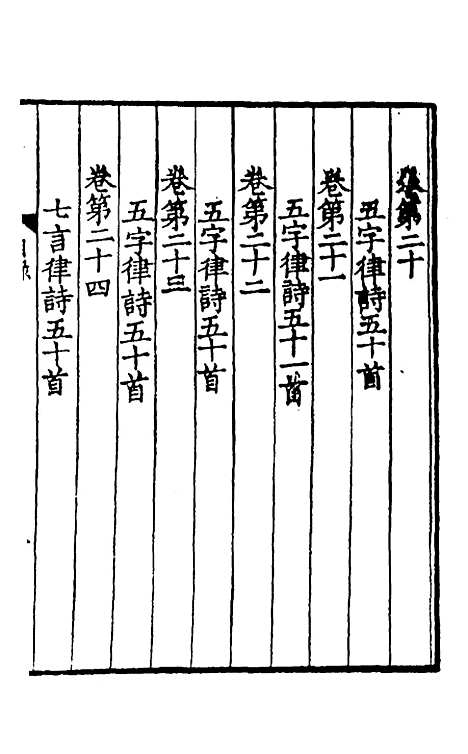 卷第二十
五字律詩五十首
卷第二十一
五字律詩五十一首
卷第二十二
五字律詩五十首
卷第二十三
五字律詩五十首
卷第二十四
七言律詩五十首
目录